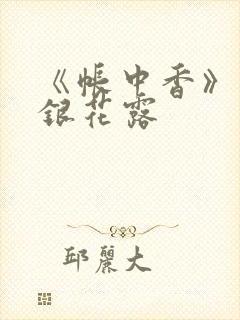 《帐中香》
银花露
邱丽大